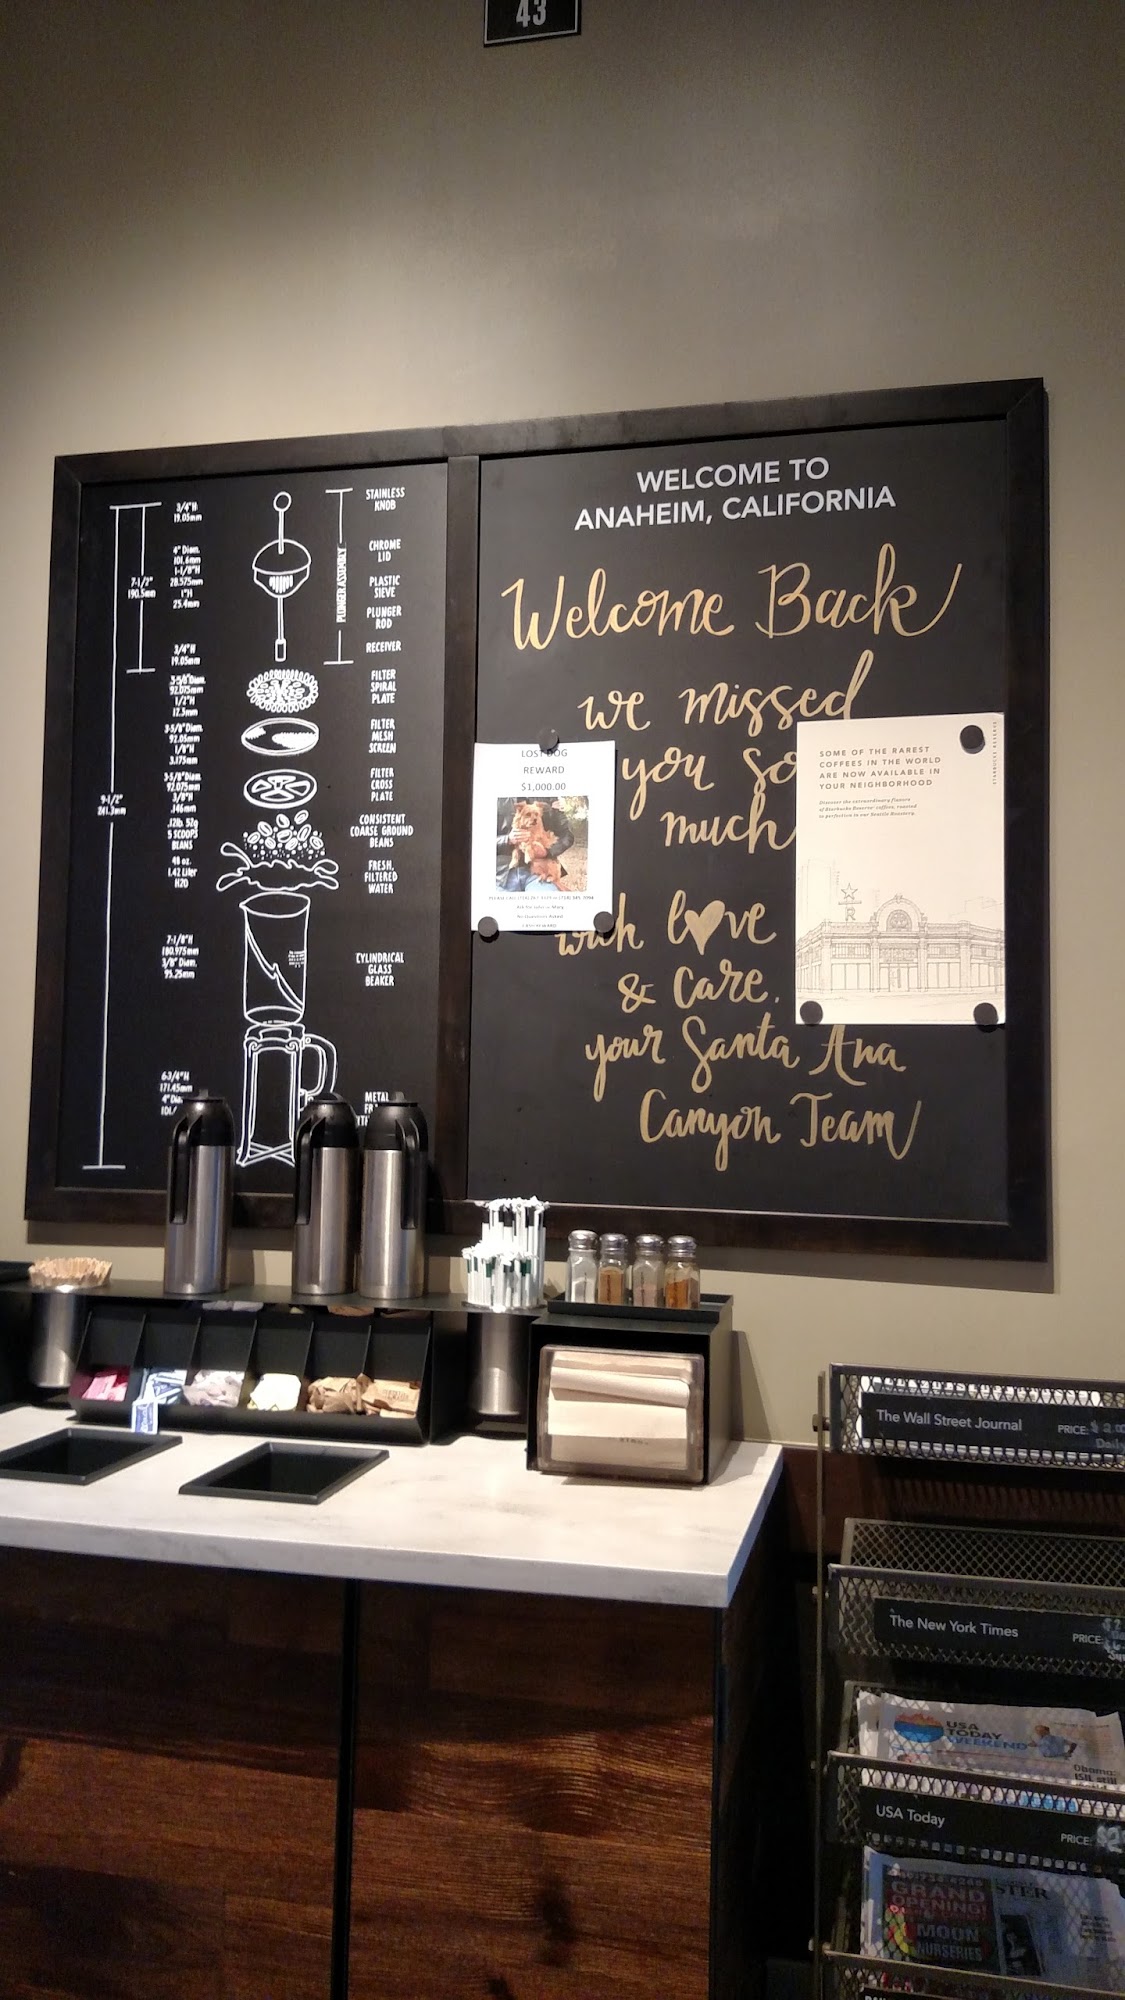 43
3/4"H
19.05mm
4" Diam.
101.6mm
1-1/8"H
28.575mm
1"H
25.4mm
7-1/2"
190.5mm
3/4"H
19.05mm
3-5/8" Diam.
92.075mm
1/2"H
12.5mm
3-5/8" Diam.
92.05mm
1/8"H
3.175mm
3-5/8" Diam.
92.075mm
3/8"H
.146mm
9-1/2"
241.3mm
.12lb. 52g
5 SCOOPS
BEANS
48 oz.
1.42 Liter
H2O
7-1/8"H
180.975mm
3/8" Diam.
95.25mm
6-3/4"H
171.45mm
PLUNGER ASSEMBLY
STAINLESS
KNOB
CHROME
LID
PLASTIC
SIEVE
PLUNGER
ROD
RECEIVER
FILTER
SPIRAL
PLATE
FILTER
MESH
SCREEN
FILTER
CROSS
PLATE
CONSISTENT
COARSE GROUND
BEANS
FRESH,
FILTERED
WATER
CYLINDRICAL
GLASS
BEAKER
METAL
WELCOME TO
ANAHEIM, CALIFORNIA
Welcome Back
we missed
you so
much
with love
& Care,
your Santa Ana
Canyon Team
LOST DOG
REWARD
$1,000.00
No Questions Asked
SOME OF THE RAREST
COFFEES IN THE WORLD
ARE NOW AVAILABLE IN
YOUR NEIGHBORHOOD
Discover the extraordinary flavors
of Starbucks Reserve® coffees, roasted
to perfection in our Seattle Roastery.
STARBUCKS RESERVE
R
The Wall Street Journal PRICE:
The New York Times PRICE:
USA
TODAY
WEEKEND
Obama:
ISIL still
USA Today PRICE:
GRAND
OPENING!
MOON
NURSERIES